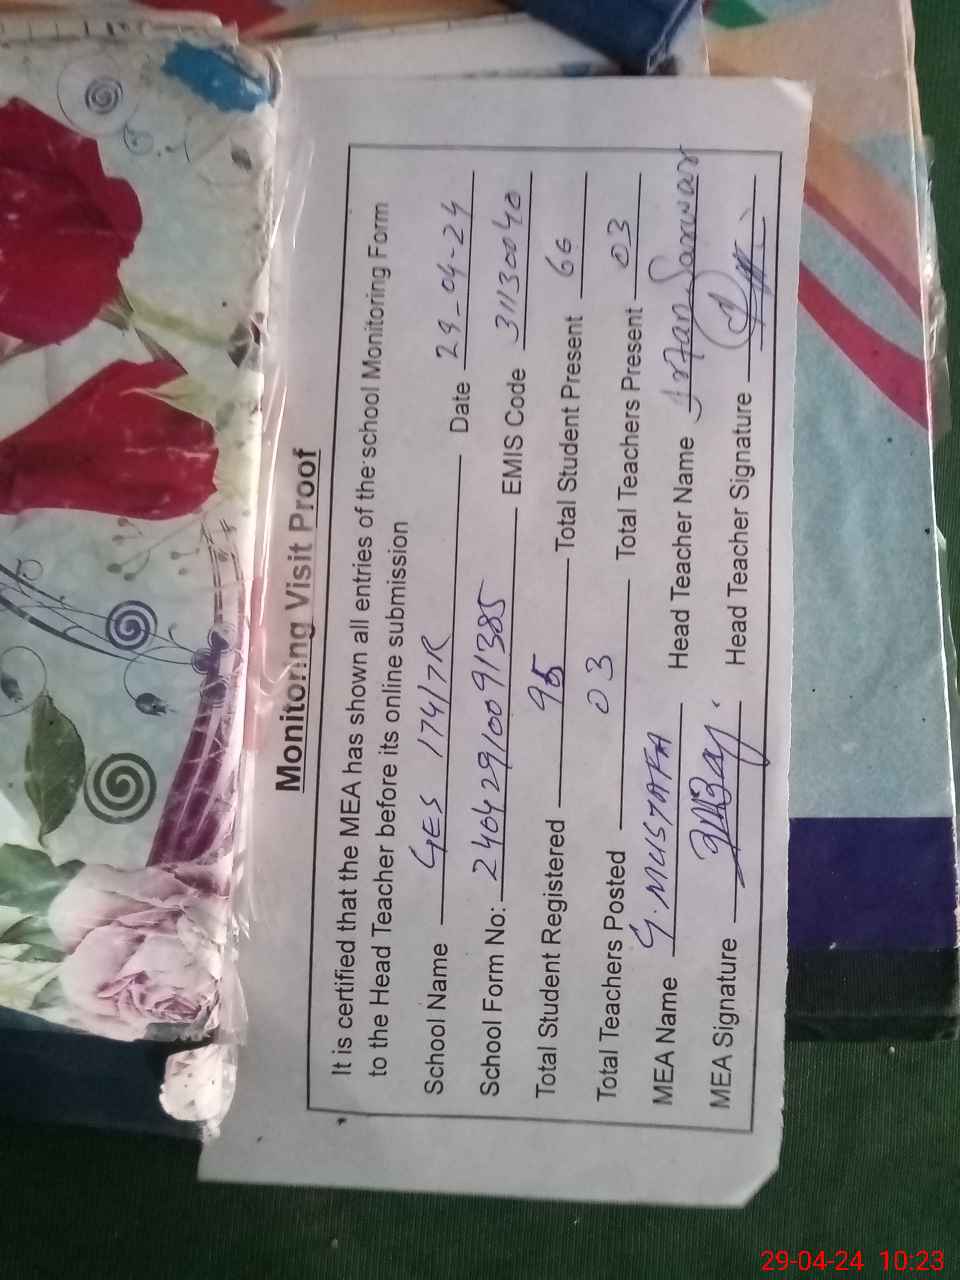 Monitoring Visit Proof
It is certified that the MEA has shown all entries of the school Monitoring Form
to the Head Teacher before its online submission
School Name GES 174/7R Date 29-04-24
School Form No: 24042910091385 EMIS Code 31130040
Total Student Registered 95 Total Student Present 66
Total Teachers Posted 03 Total Teachers Present 03
MEA Name G. MUSTAFA Head Teacher Name Irfan Sarwar
MEA Signature Head Teacher Signature
29-04-24 10:23